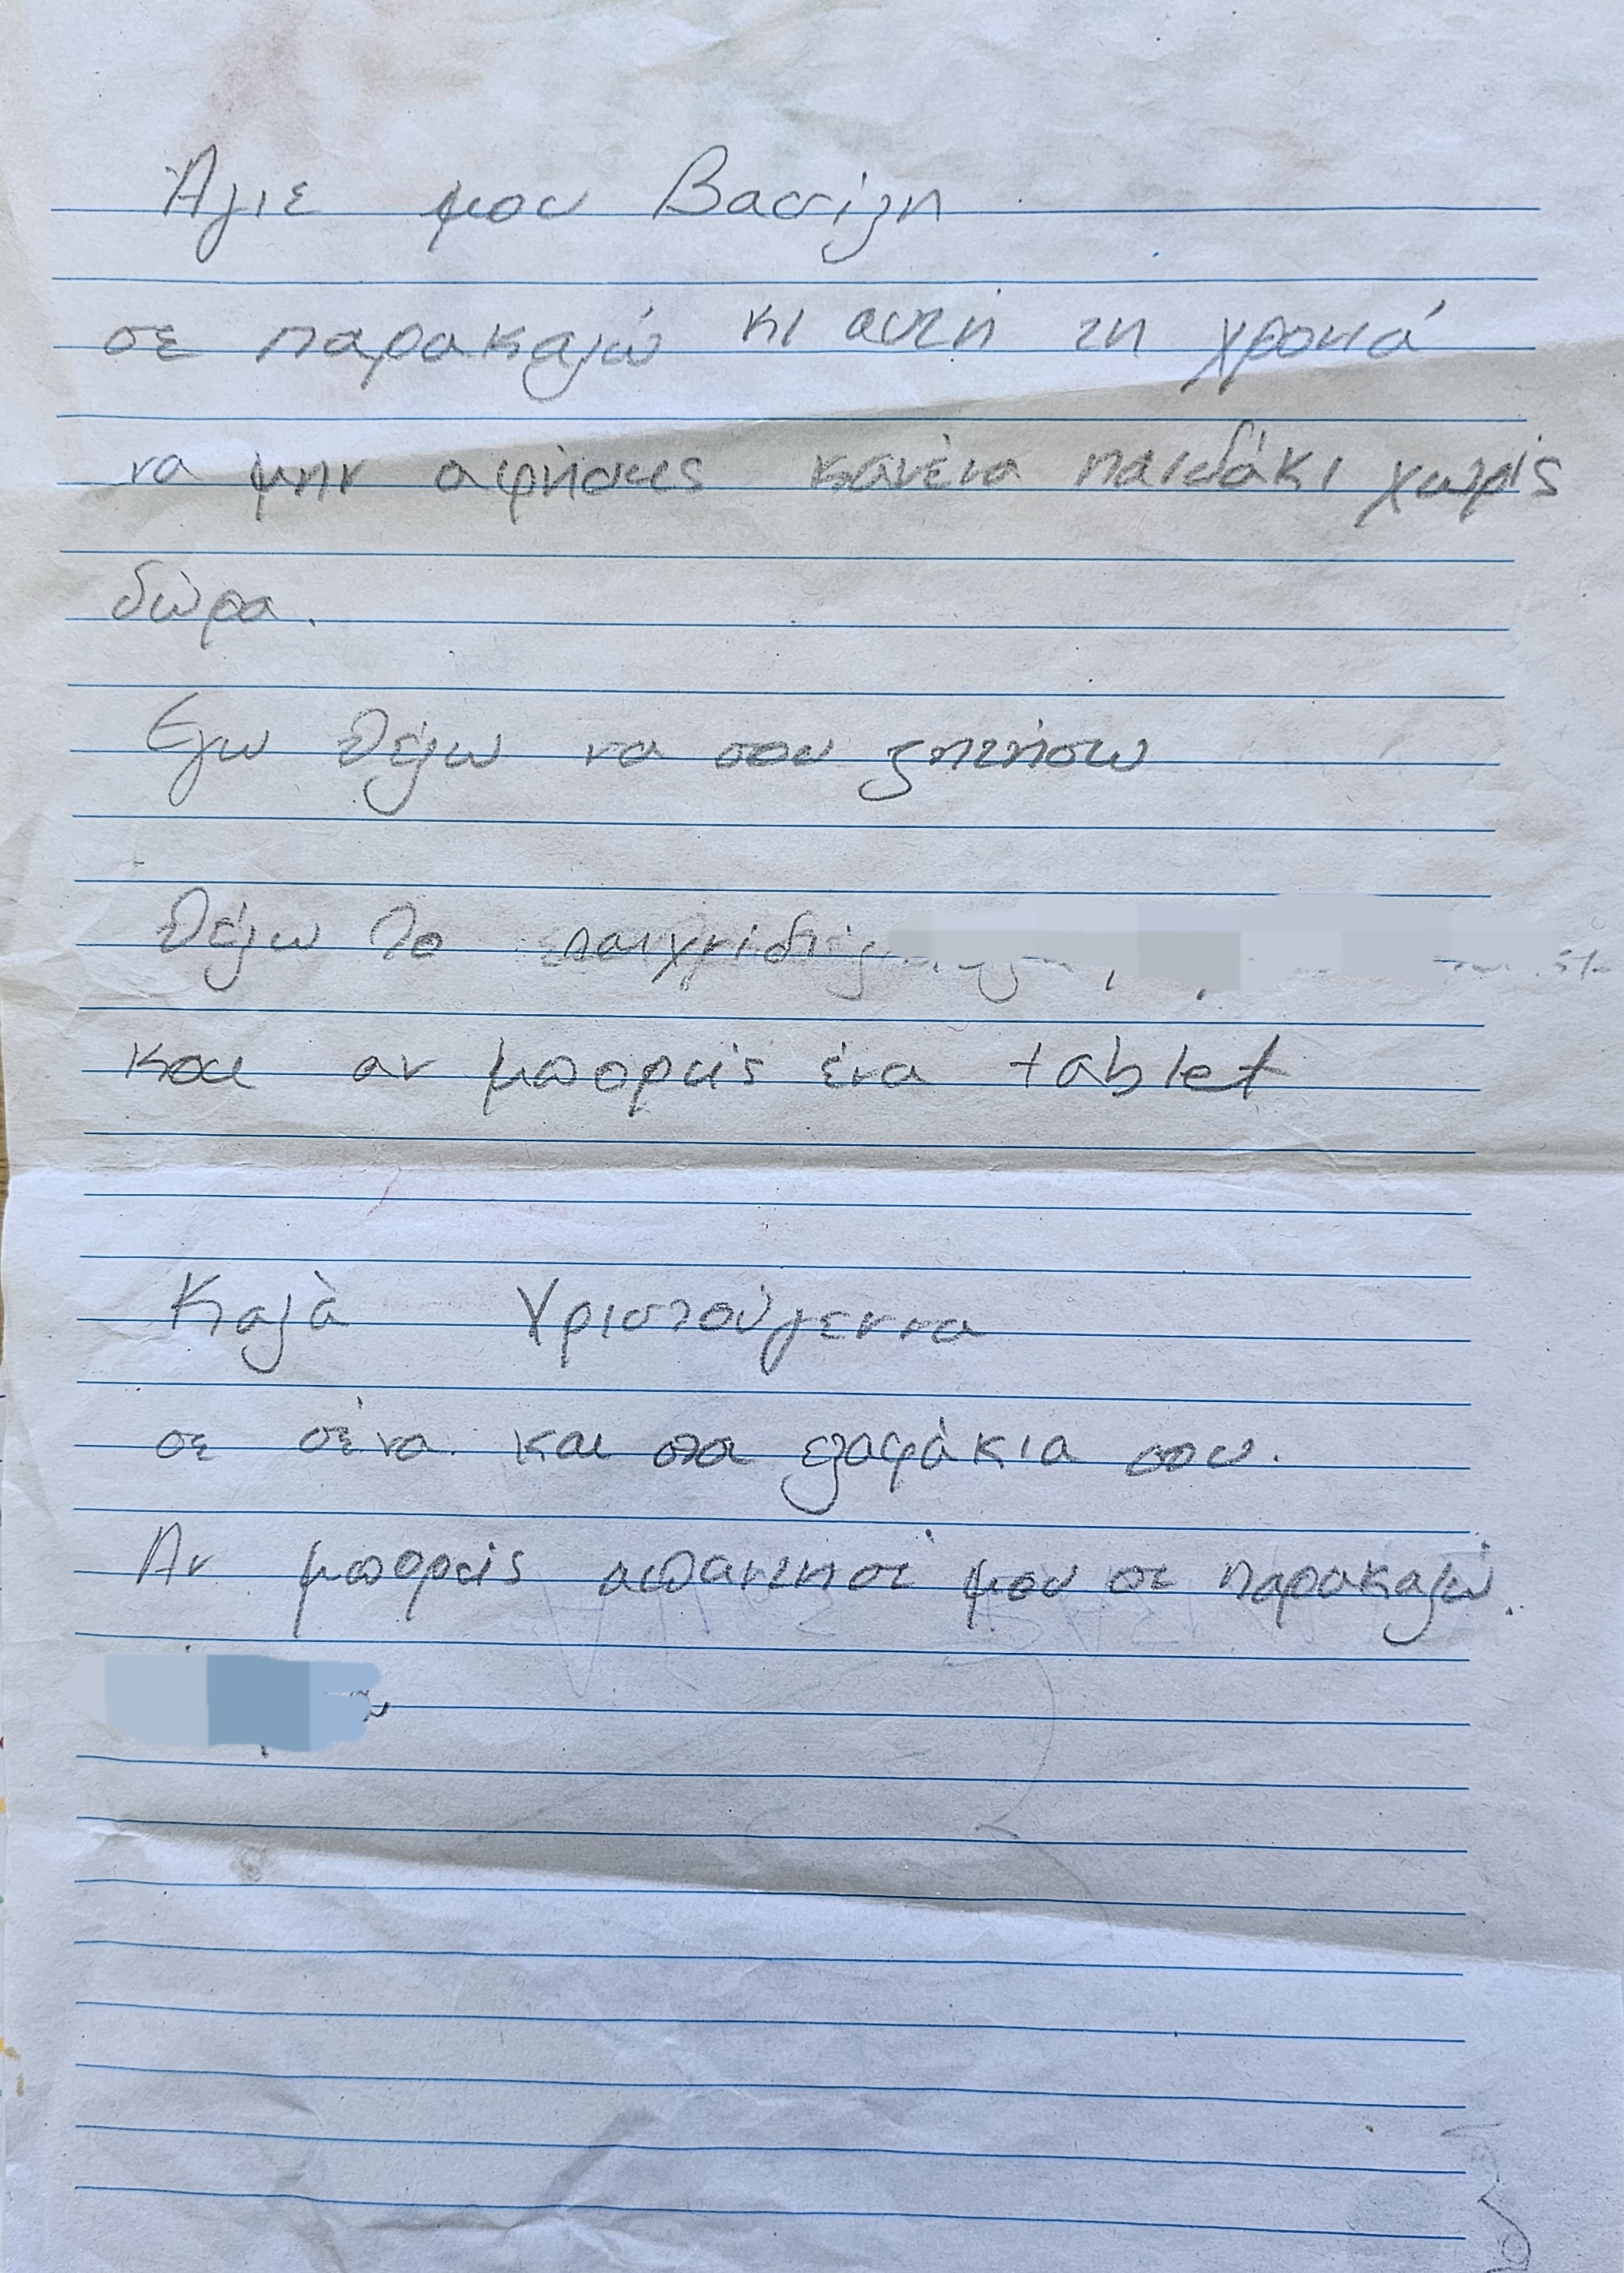 Άγιε μου Βασίλη
σε παρακαλώ κι αυτή τη χρονιά
να μην αφήσεις κανένα παιδάκι χωρίς
δώρα.
Εγω θέλω να σου ζητήσω
Θέλω το παιχνίδι
και αν μπορείς ένα tablet
Καλά Χριστούγεννα
σε σένα και στα ελαφάκια σου.
Αν μπορείς απάντησέ μου σε παρακαλώ.